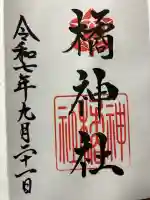 橘神社
令和七年九月二十一日